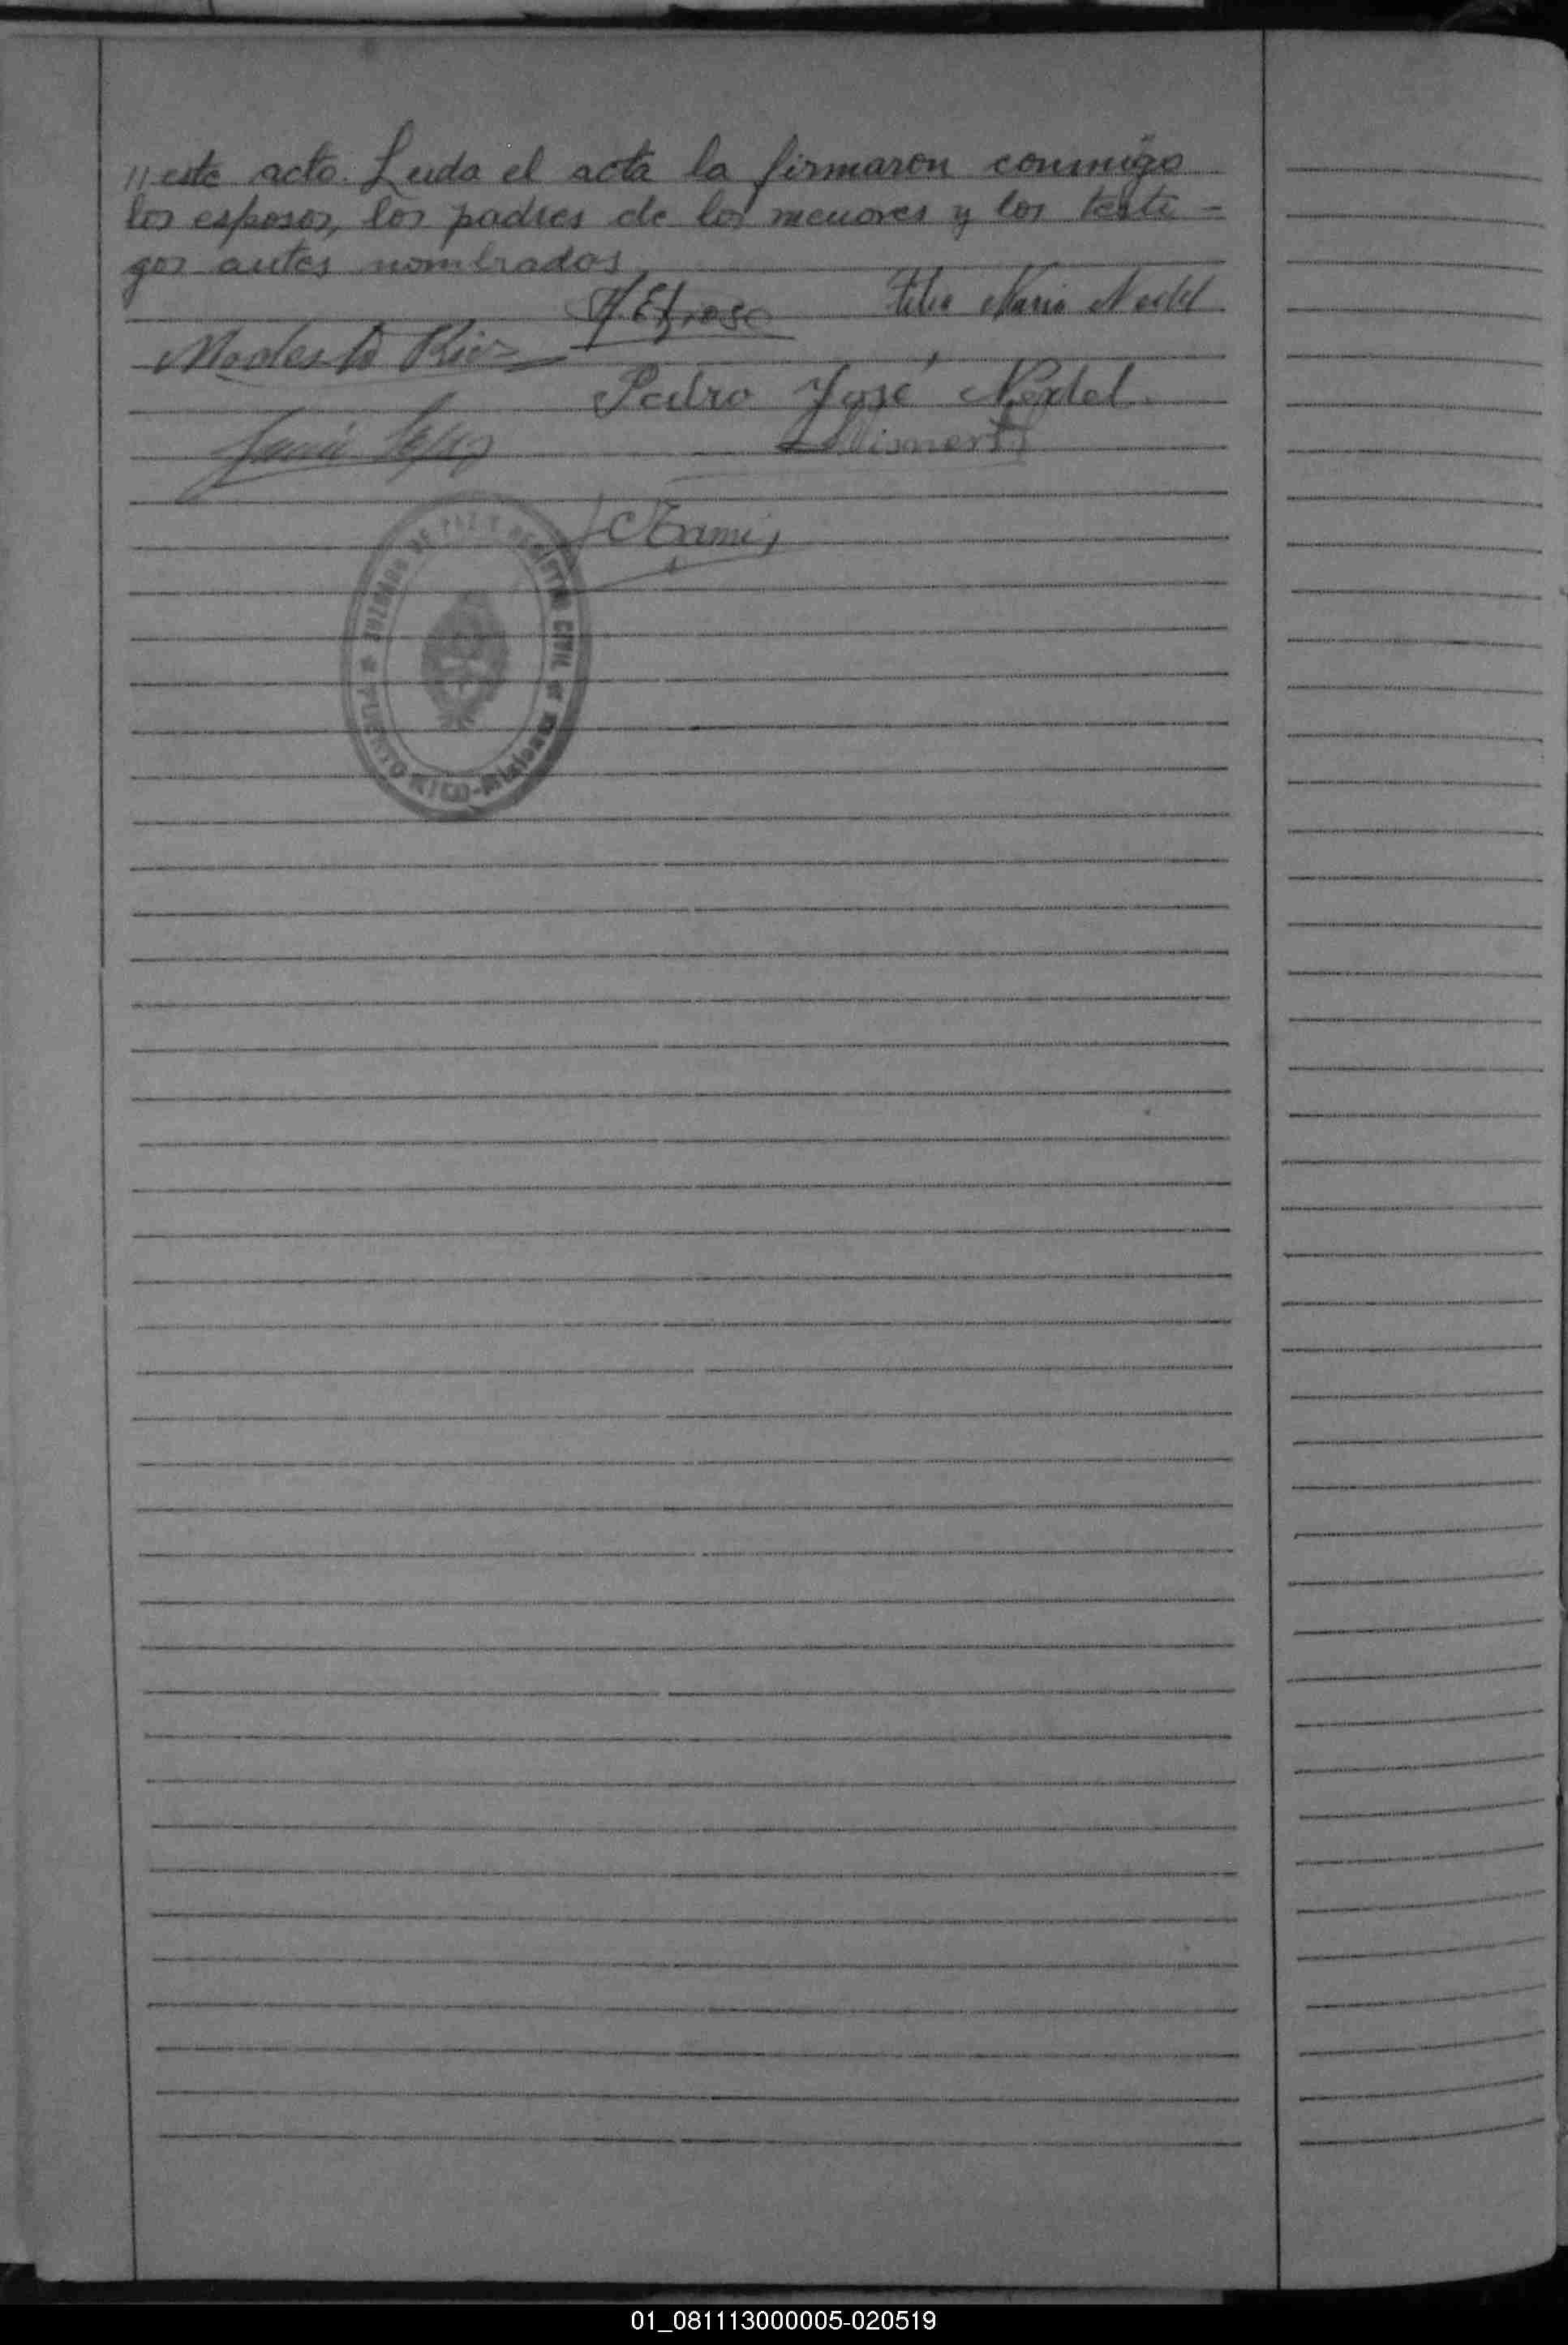 // este acto. Leida el acta la firmaron conmigo
los esposos, los padres de los menores y los testi-
gos antes nombrados
Maria Nedel
Modesto Rios
Pedro José Nedel.
JUZGADO DE PAZ Y REGISTRO CIVIL
PUERTO RICO - Misiones
01_081113000005-020519